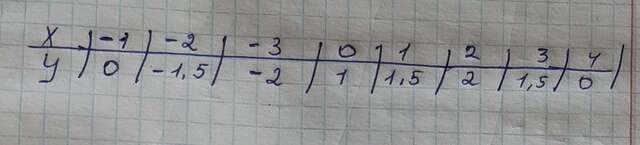 x | -1 | -2 | -3 | 0 | 1 | 2 | 3 | 4 |
y | 0 | -1,5 | -2 | 1 | 1,5 | 2 | 1,5 | 0 |